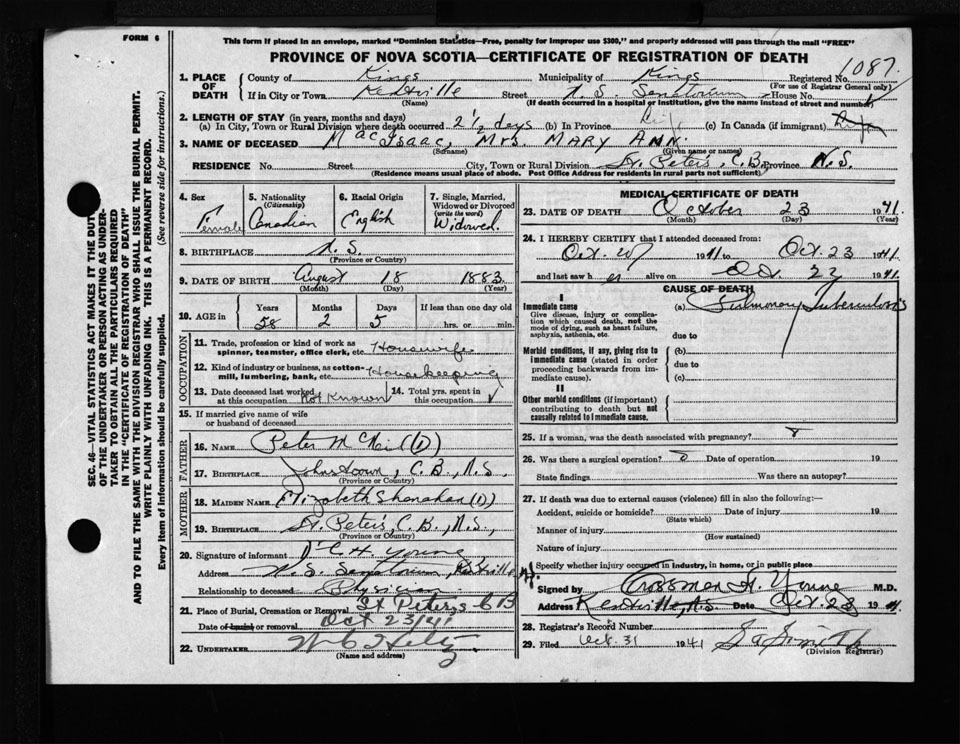 FORM 6
This form if placed in an envelope, marked "Dominion Statistics—Free, penalty for improper use $300," and properly addressed will pass through the mail "FREE"
PROVINCE OF NOVA SCOTIA—CERTIFICATE OF REGISTRATION OF DEATH
1. PLACE OF DEATH
County of Kings Municipality of Kings Registered No. 1087.
(For use of Registrar General only)
If in City or Town Kentville Street N. S. Sanatorium House No.
(If death occurred in a hospital or institution, give the name instead of street and number)
2. LENGTH OF STAY (in years, months and days)
(a) In City, Town or Rural Division where death occurred 2 1/2 days (b) In Province Life (c) In Canada (if immigrant) Life
3. NAME OF DECEASED MacIsaac, Mrs. MARY ANN.
(Surname) (Given name or names)
RESIDENCE No. Street City, Town or Rural Division St. Peter's, C.B. Province N.S.
(Residence means usual place of abode. Post Office Address for residents in rural parts not sufficient)
4. Sex
Female
5. Nationality
(Citizenship)
Canadian
6. Racial Origin
English
7. Single, Married,
Widowed or Divorced
(write the word)
Widowed.
8. BIRTHPLACE N.S.
(Province or Country)
9. DATE OF BIRTH August 18 1883.
(Month) (Day) (Year)
10. AGE in
Years Months Days If less than one day old
58 2 5 hrs. or min.
OCCUPATION
11. Trade, profession or kind of work as
spinner, teamster, office clerk, etc. Housewife
12. Kind of industry or business, as cotton-
mill, lumbering, bank, etc. Housekeeping
13. Date deceased last worked
at this occupation Not Known
14. Total yrs. spent in
this occupation
15. If married give name of wife
or husband of deceased
FATHER
16. NAME Peter McNeil (D)
17. BIRTHPLACE Johnstown, C.B., N.S.
(Province or Country)
MOTHER
18. MAIDEN NAME Elizabeth Shanahan (D)
19. BIRTHPLACE St. Peter's, C.B., N.S.,
(Province or Country)
20. Signature of informant H. Young
Address N.S. Sanatorium, Kentville, N.S.
Relationship to deceased Physician
21. Place of Burial, Cremation or Removal St Peters CB
Date of burial or removal Oct 23/41
22. UNDERTAKER
(Name and address)
MEDICAL CERTIFICATE OF DEATH
23. DATE OF DEATH October 23 1941.
(Month) (Day) (Year)
24. I HEREBY CERTIFY that I attended deceased from:
Oct. 1941 to Oct. 23 1941
and last saw her alive on Oct. 1941.
CAUSE OF DEATH
I
Immediate cause (a) Pulmonary Tuberculosis
Give disease, injury or complica-
tion which caused death, not the
mode of dying, such as heart failure,
asphyxia, asthenia, etc.
due to
Morbid conditions, if any, giving rise to
immediate cause (stated in order
proceeding backwards from im-
mediate cause).
(b)
due to
(c)
II
Other morbid conditions (if important)
contributing to death but not
causally related to immediate cause.
25. If a woman, was the death associated with pregnancy?
26. Was there a surgical operation? Date of operation 19
State findings Was there an autopsy?
27. If death was due to external causes (violence) fill in also the following:—
Accident, suicide or homicide? Date of injury 19
(State which)
Manner of injury
(How sustained)
Nature of injury
Specify whether injury occurred in industry, in home, or in public place
Signed by Young M.D.
Address Kentville, N.S. Date Oct. 23 1941.
28. Registrar's Record Number
29. Filed Oct. 31 1941 Smith
(Division Registrar)
SEC. 46—VITAL STATISTICS ACT MAKES IT THE DUTY
OF THE UNDERTAKER OR PERSON ACTING AS UNDER-
TAKER TO OBTAIN ALL THE PARTICULARS REQUIRED
IN THE "CERTIFICATE OF REGISTRATION OF DEATH"
AND TO FILE THE SAME WITH THE DIVISION REGISTRAR WHO SHALL ISSUE THE BURIAL PERMIT.
WRITE PLAINLY WITH UNFADING INK. THIS IS A PERMANENT RECORD.
Every item of information should be carefully supplied. (See reverse side for instructions.)